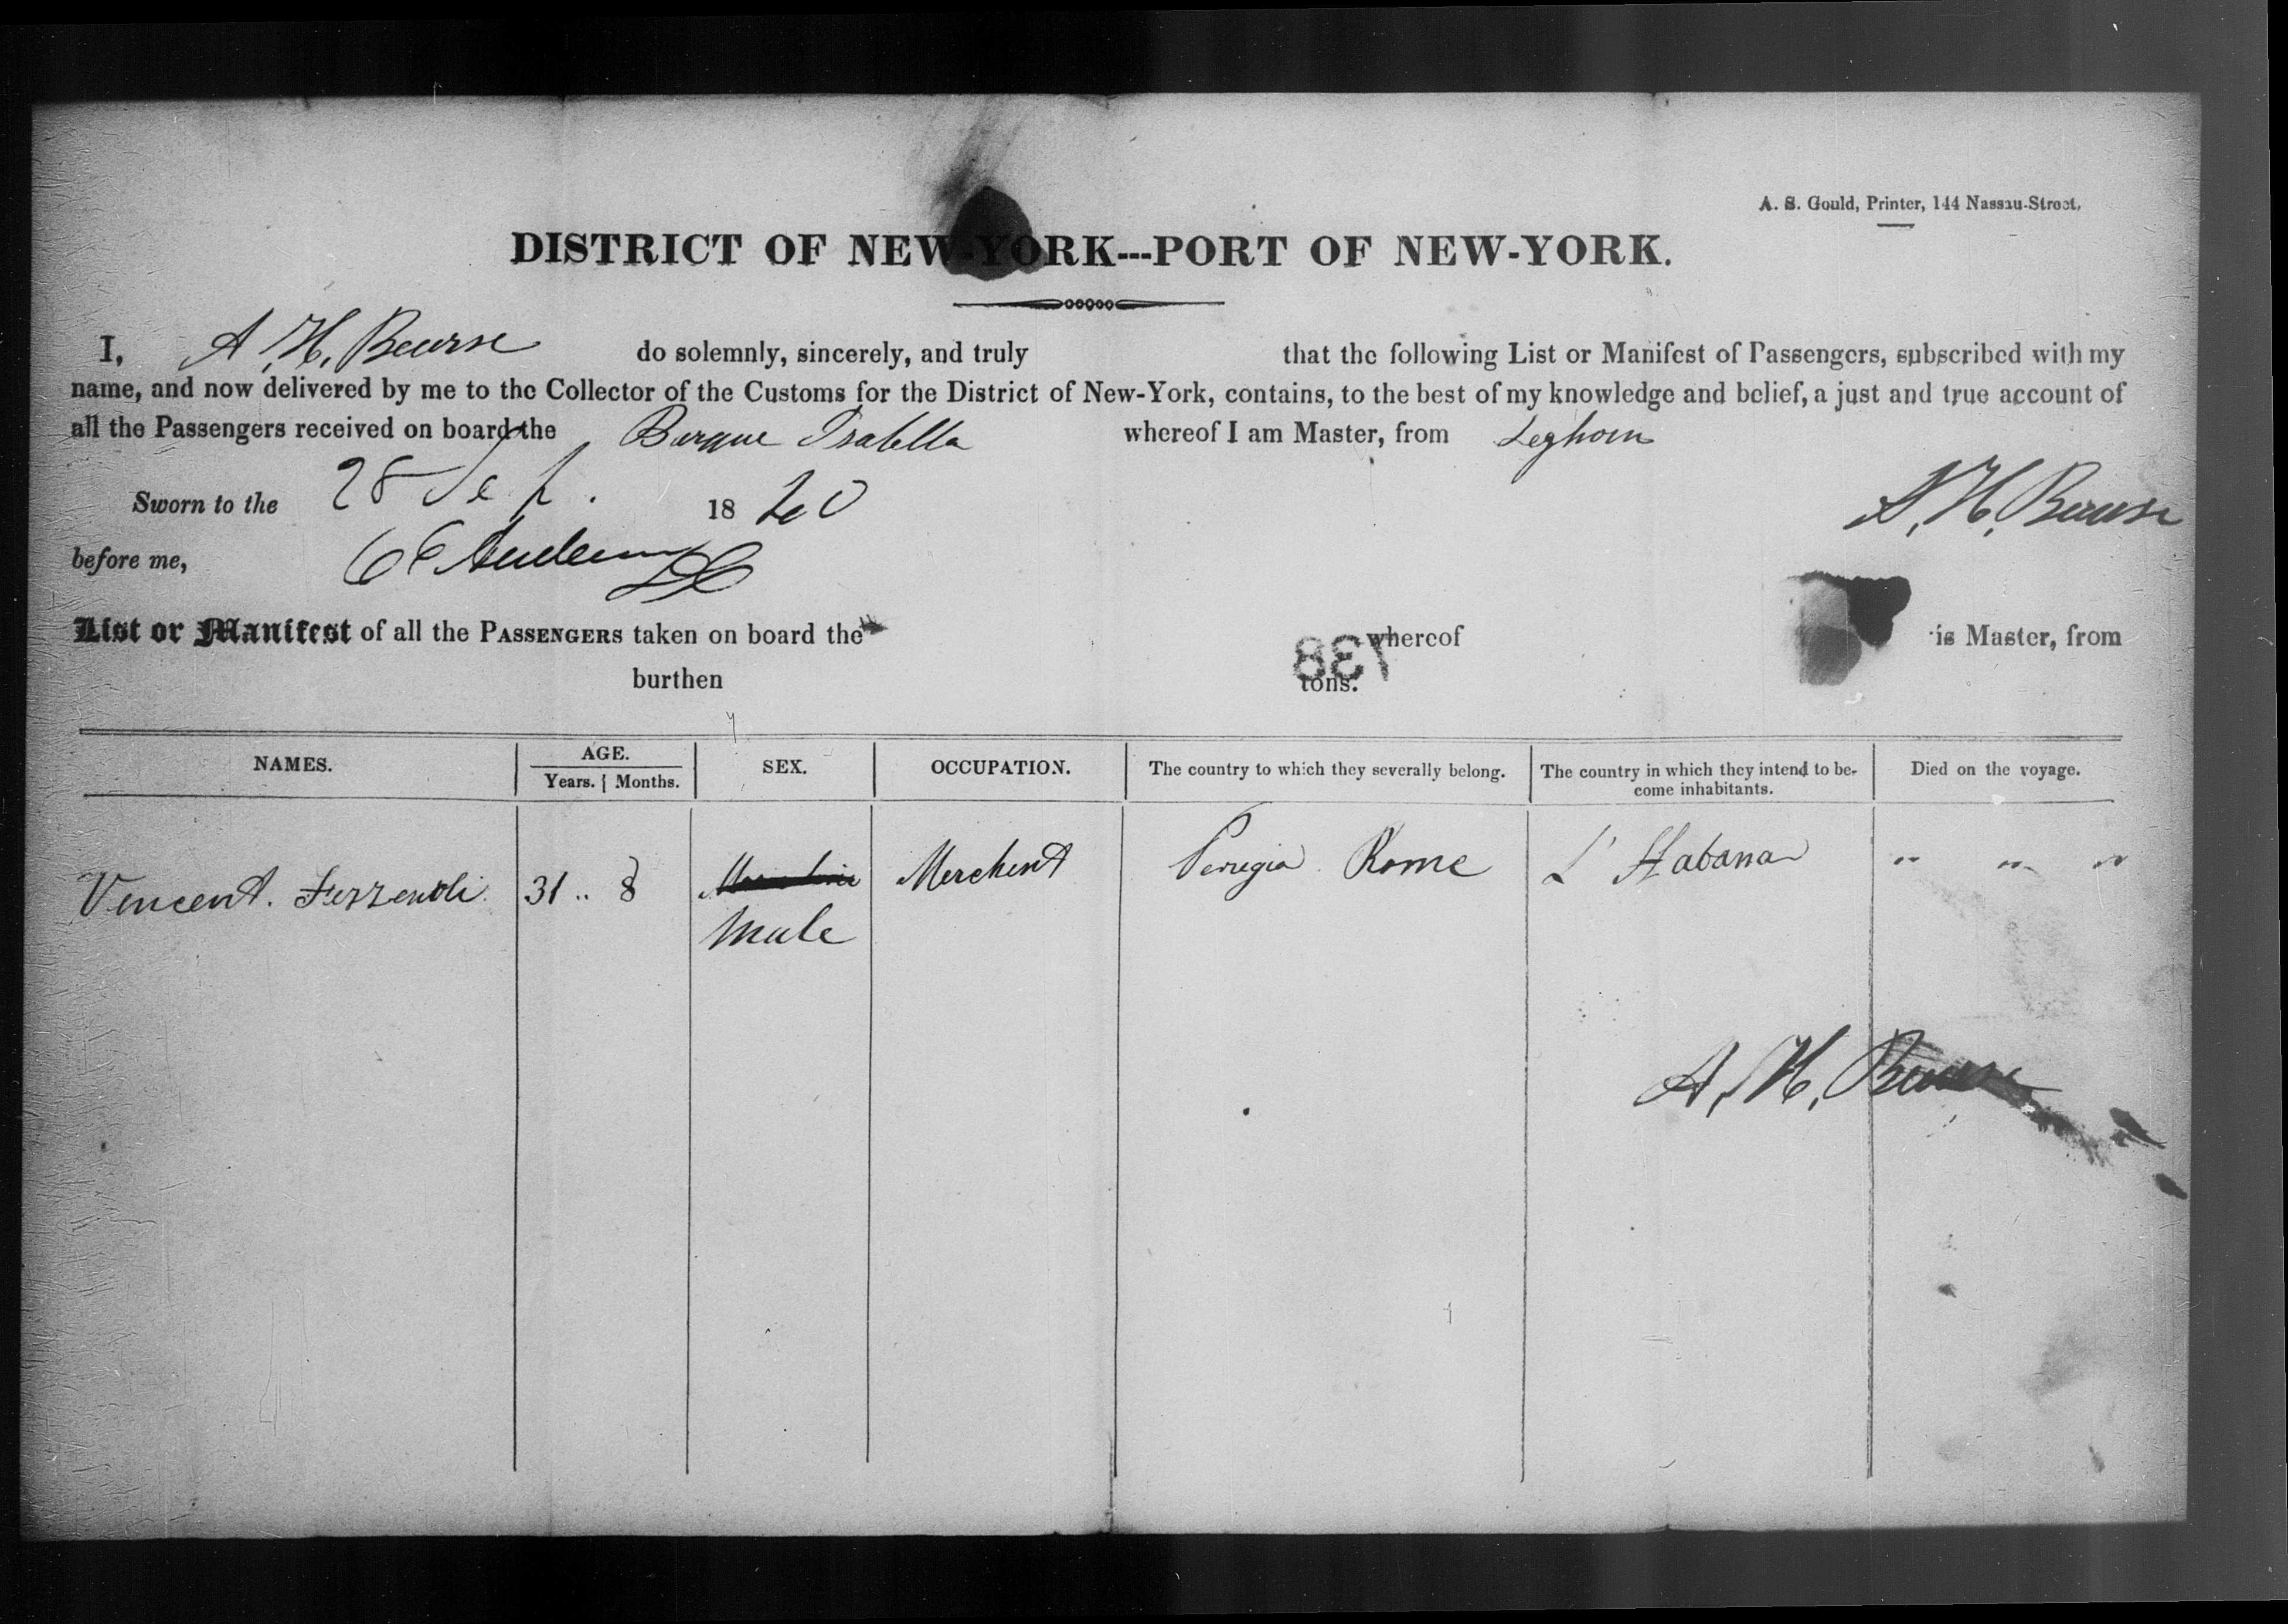 A. S. Gould, Printer, 144 Nassau-Street,
DISTRICT OF NEW-YORK---PORT OF NEW-YORK.
I, A. H. Bearse do solemnly, sincerely, and truly that the following List or Manifest of Passengers, subscribed with my
name, and now delivered by me to the Collector of the Customs for the District of New-York, contains, to the best of my knowledge and belief, a just and true account of
all the Passengers received on board the Barque Isabella whereof I am Master, from Leghorn
Sworn to the 28 Sep. 1860
A. H. Bearse
before me,
List or Manifest of all the PASSENGERS taken on board the whereof is Master, from
burthen tons.
738
NAMES. AGE. SEX. OCCUPATION. The country to which they severally belong. The country in which they intend to be-
Years. Months. come inhabitants. Died on the voyage.
Vincent. 31 .. 8 Merchent Perugia Rome L' Habana " " "
Male
A. H. Bearse